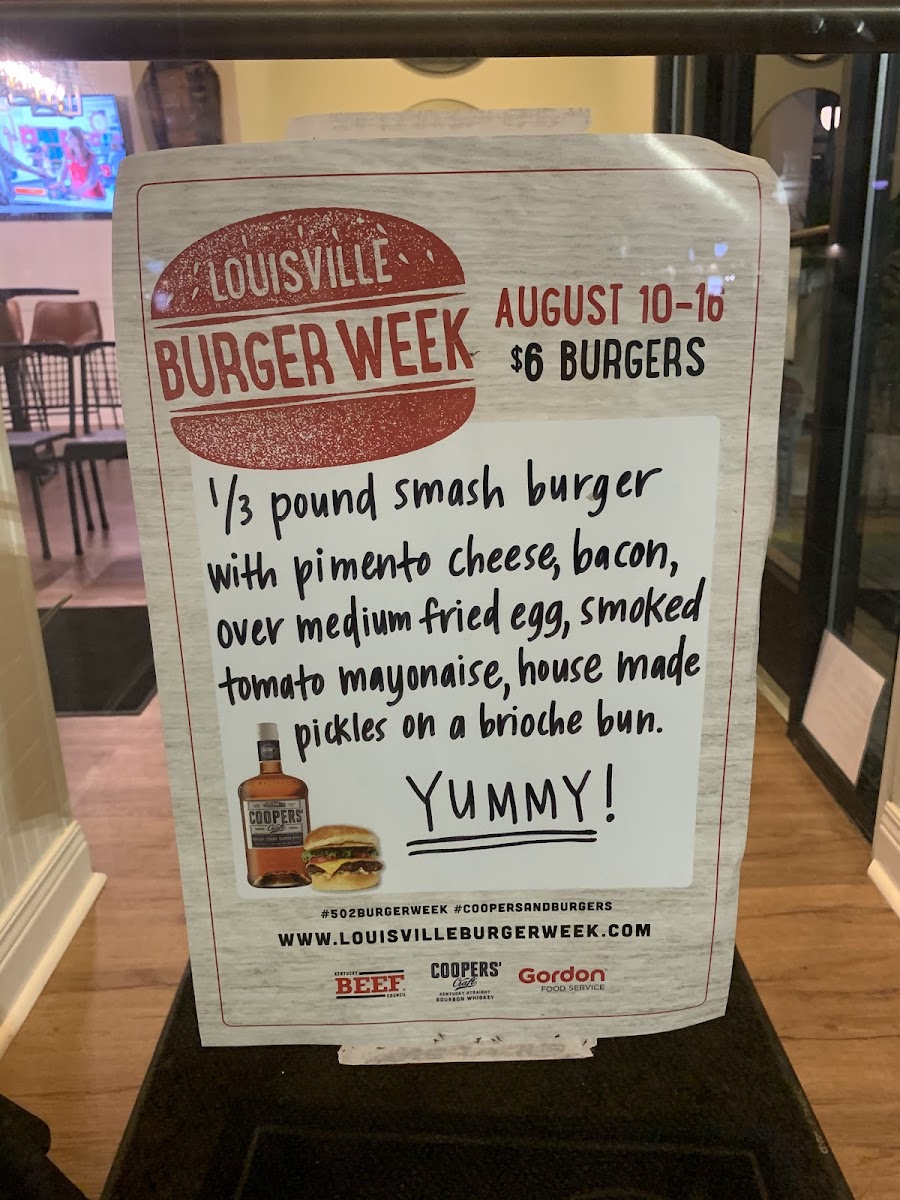 LOUISVILLE
BURGER WEEK
AUGUST 10-16
$6 BURGERS
1/3 pound smash burger
with pimento cheese, bacon,
over medium fried egg, smoked
tomato mayonaise, house made
pickles on a brioche bun.
YUMMY!
COOPERS'
Craft
#502BURGERWEEK #COOPERSANDBURGERS
WWW.LOUISVILLEBURGERWEEK.COM
KENTUCKY
BEEF
COUNCIL
COOPERS'
Craft
KENTUCKY STRAIGHT
BOURBON WHISKEY
Gordon
FOOD SERVICE